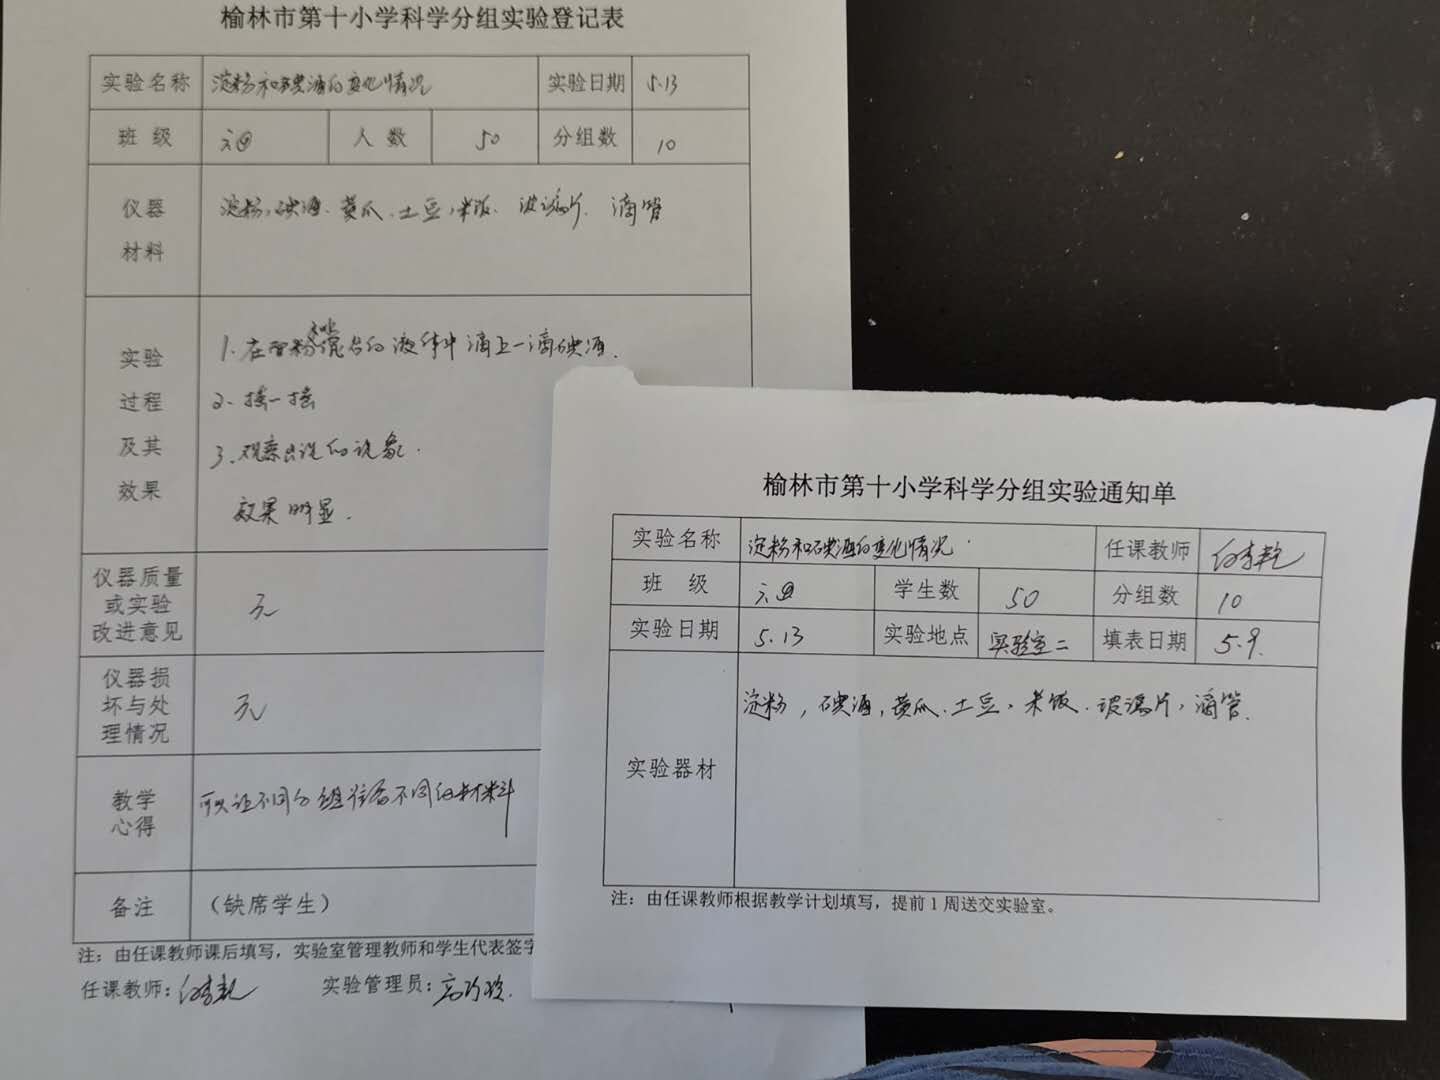 榆林市第十小学科学分组实验登记表
实验名称 淀粉和碘酒的变化情况 实验日期 5.13
班 级 六四 人 数 50 分组数 10
仪器
材料
淀粉,碘酒、黄瓜、土豆,米饭、玻璃片、滴管
实验
过程
及其
效果
1.在淀粉混合的液体中滴上一滴碘酒.
2、摇一摇
3、观察出现的现象.
效果明显.
仪器质量
或实验
改进意见
无
仪器损
坏与处
理情况
无
教学
心得
可以让不同分组准备不同的材料
备注 (缺席学生)
注:由任课教师课后填写,实验室管理教师和学生代表签字
任课教师: 实验管理员:
榆林市第十小学科学分组实验通知单
实验名称 淀粉和碘酒的变化情况. 任课教师
班 级 六四 学生数 50 分组数 10
实验日期 5.13 实验地点 实验室二 填表日期 5.9.
实验器材 淀粉,碘酒,黄瓜、土豆、米饭、玻璃片,滴管.
注:由任课教师根据教学计划填写,提前1周送交实验室。